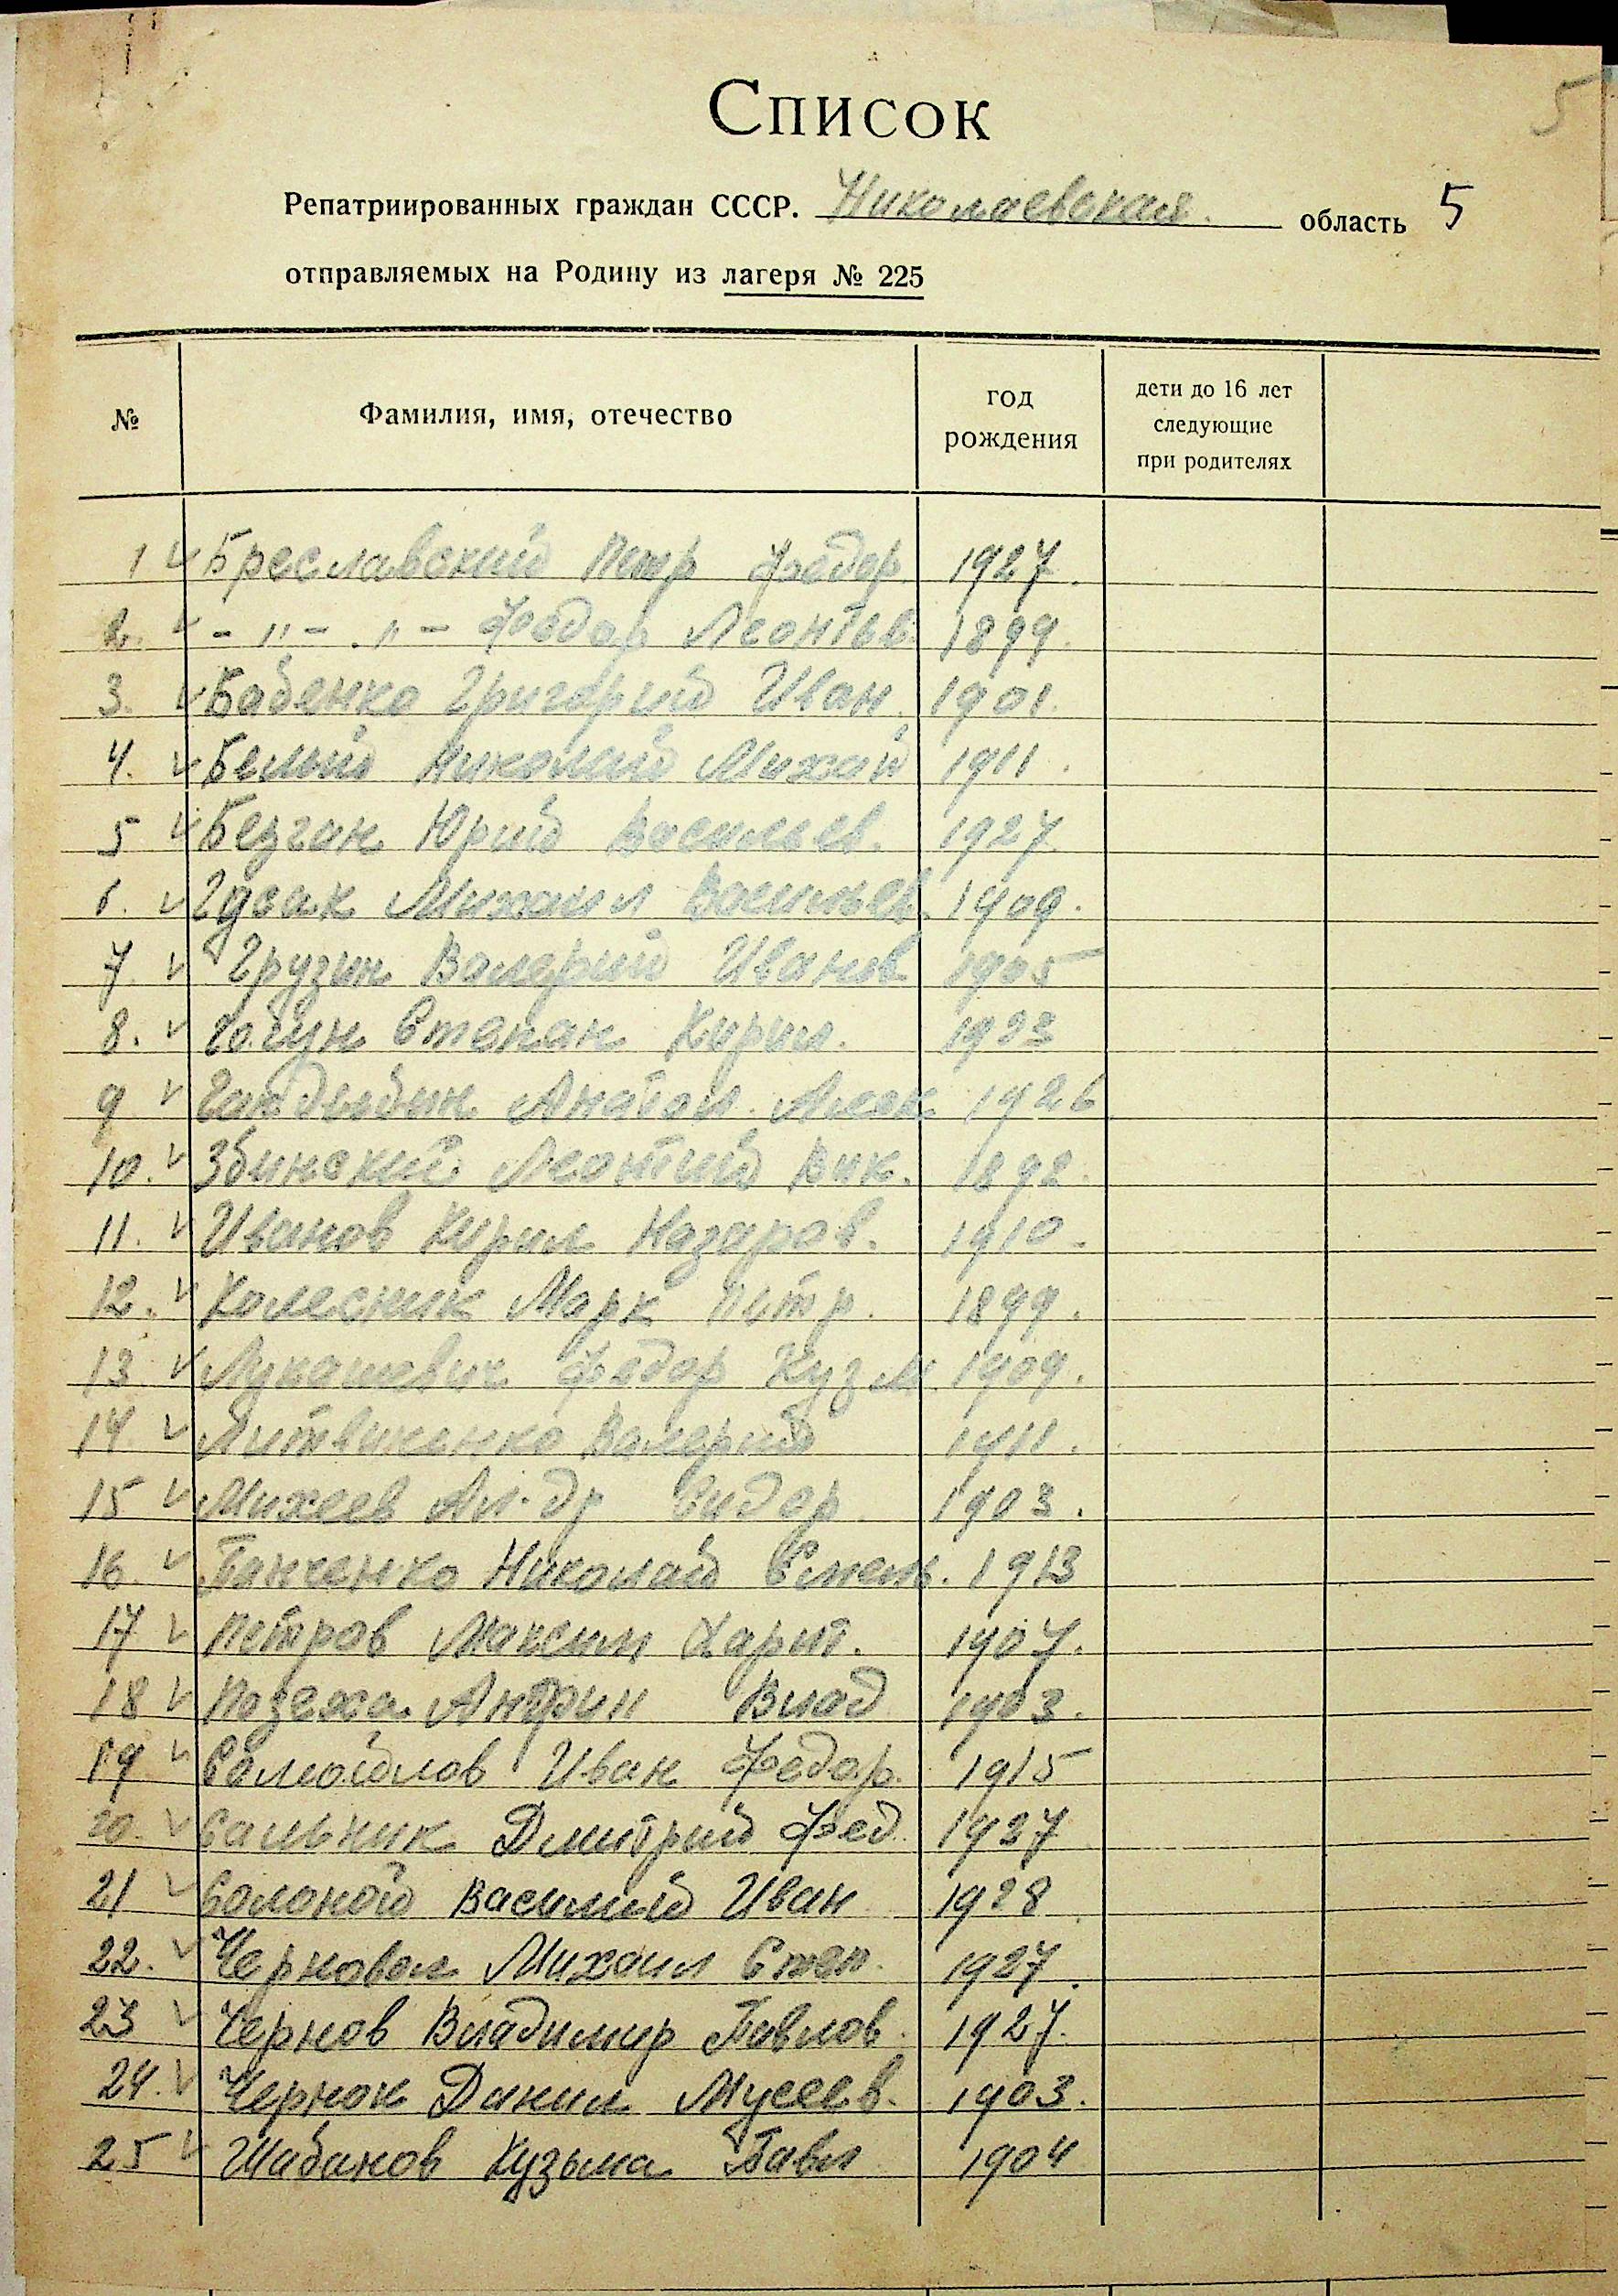 5
Список
Репатриированных граждан СССР. Николаевская. область 5
отправляемых на Родину из лагеря № 225
№ Фамилия, имя, отчество год рождения дети до 16 лет следующие при родителях
1 ✓ Бреславский Петр Федор. 1927.
2. ✓ - " - . " - Федор Леонтьв. 1899.
3. ✓ Бабенко Григорий Иван. 1901.
4. ✓ Белый Николай Михай 1911.
5 ✓ Безган Юрий Васильев. 1927.
6. ✓ Гусак Михаил Васильев. 1909.
7. ✓ Грузин Валерий Иванов 1905
8. ✓ Степан Кирил. 1923
9 ✓ Анатол. Алек 1926
10. ✓ Збинский Леонтий Вик. 1892.
11. ✓ Иванов Кирил Назаров. 1910.
12. ✓ Колесник Марк Петр. 1899.
13 ✓ Лукашевич Федор Кузм. 1909.
14 ✓ Литвиненко Валерий 1911.
15 ✓ Михеев Ал-др Сидор. 1903.
16. ✓ Панченко Николай Емель. 1913
17 ✓ Петров Максим Харит. 1907.
18 ✓ Позеха Влад 1903.
19 ✓ Самойлов Иван Федор. 1915
20. ✓ Сальник Дмитрий Фед. 1927
21 ✓ Солоной Василий Иван 1928
22. ✓ Черновол Михаил Степ. 1927.
23 ✓ Чернов Владимир Павлов. 1927.
24. ✓ Чернок Данил Мусеев. 1903.
25 ✓ Шабанов Кузьма Павл 1904